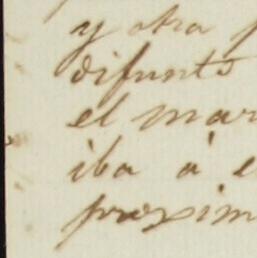 y otra p
difunto
el mar
iba á e
proxim